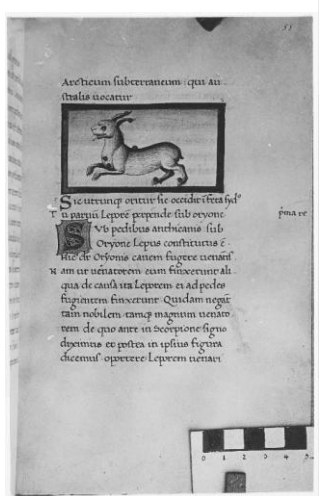 55
Arcticum subterraneum qui au
stralis uocatur
Sic utrunq; oritur sic occidit
Tu paruũ Leporẽ perpende sub oryone
Svb pedibus anthicanis sub
Oryone Lepus constitutus ẽ
Hic dr̃ Oryonis canem fugere uenãt
Nam ut uenatorem eum finxerunt ali
qua de causa ita Leporem ei ad pedes
fugientem finxerunt Quidam negãt
tam nobilem tamq; magnum uenato
rem de quo ante in Scorpione signo
diximus et postea in ipsius figura
dicemus oportere Leporem uenari
0 1 2 3 4 5